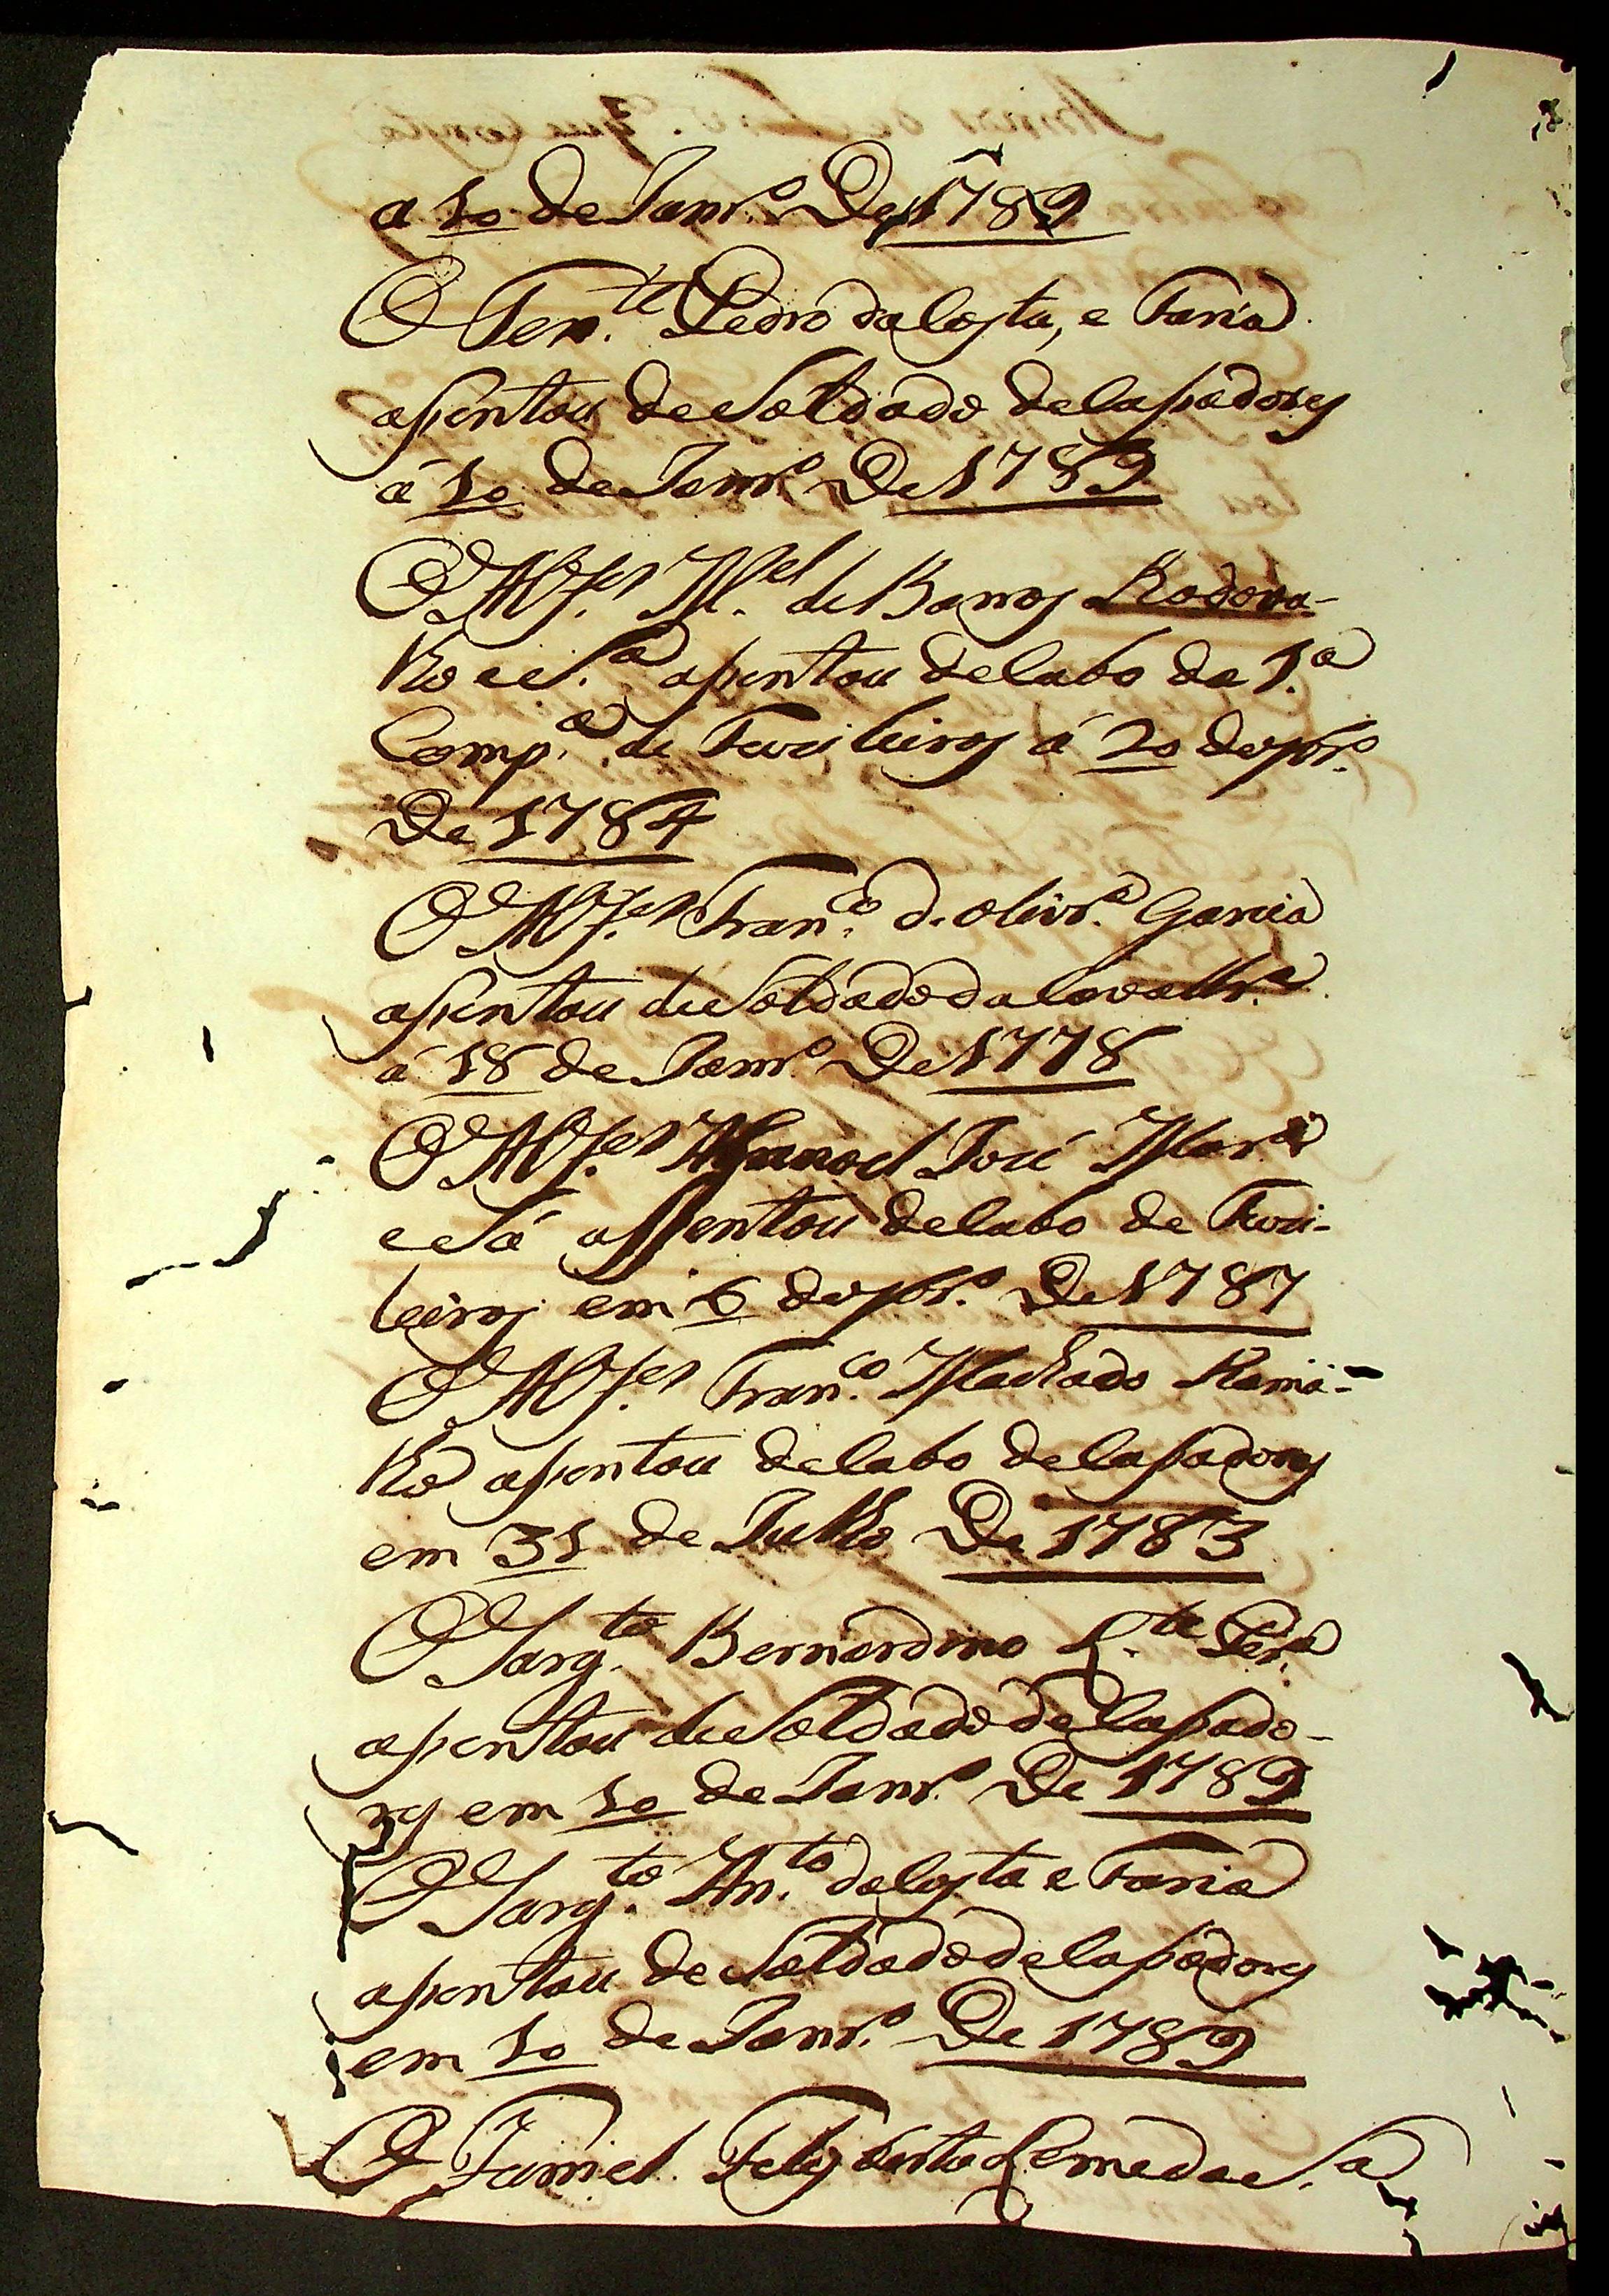 a 10 de Janr.º De 1789
O Ten.te Pedro da Costa, e Faria
asentou de Soldado de Casadores
á 10 de Janr.º De 1789
O Alf.es M.el de Barros Rodova-
lho e S.a asentou de Cabo da 1.a
Comp.a de Fuzileiros á 20 de 9br.º
De 1784
O Alf.es Fran.co de Olivr.a Garcia
asentou de Soldado da Cavallr.a
á 18 de Janr.º De 1778
O Alf.es Manoel José Mar.a
e Sá assentou de Cabo de Fuzi-
leiros em 6 de 9br.º De 1787
O Alf.es Fran.co Machado Rama-
lho asentou de Cabo de Casadores
em 31 de Julho De 1783
O Sarg.to Bernardino L.te Per.a
asentou de Soldado de Casado-
res em 10 de Janr.º De 1789
O Sarg.to An.to da Costa e Faria
asentou de Soldado de Casadores
em 10 de Janr.º De 1789
O Furriel Felisberto Leme da S.a